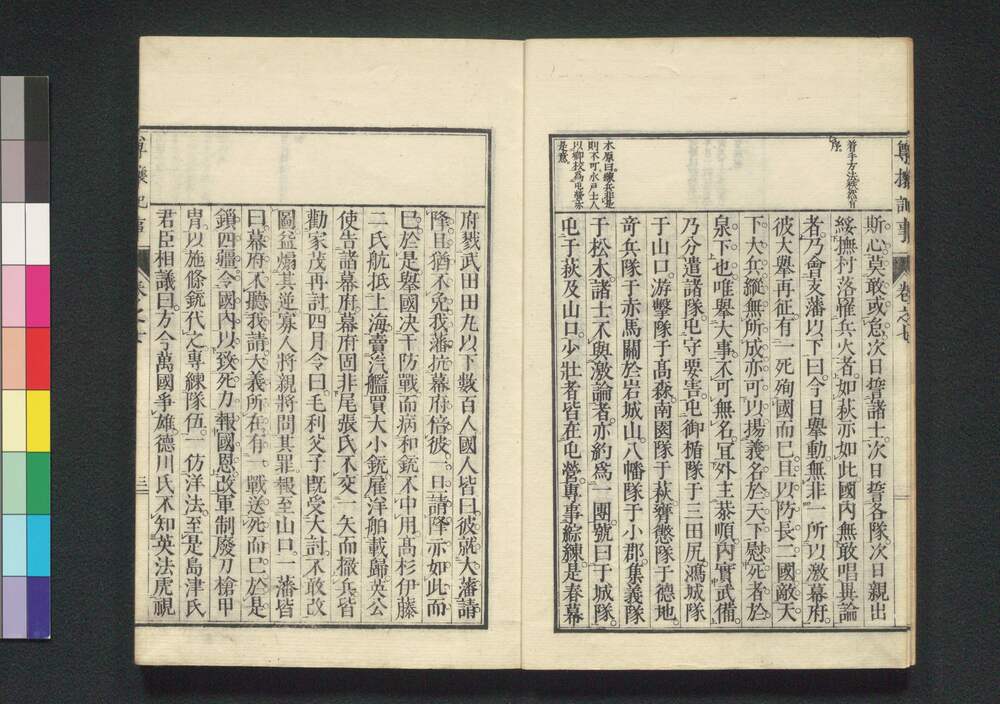 尊攘記事 卷之七
着手方法綏然有
序
木原曰練兵非是
則不可水戶士人
以鄉校爲屯營亦
是意
斯心莫敢或怠次日誓諸士次日誓各隊次日親出
綏撫村落罹兵火者如萩亦如此國內無敢唱異論
者乃會支藩以下曰今日擧動無非一所以激幕府
彼大擧再征有一死殉國而已且以防長二國敵天
下大兵縱無所成亦可以揚義名於天下慰死者於
泉下也唯擧大事不可無名宜外主恭順內實武備
乃分遣諸隊屯守要害屯御楯隊于三田尻鴻城隊
于山口游擊隊于高森南園隊于萩膺懲隊于德地
奇兵隊于赤馬關於岩城山八幡隊于小郡集義隊
于松木諸士不與激論者亦約爲一團號曰于城隊
屯于萩及山口少壯者皆在屯營專事綜練是春幕
府戮武田田九以下數百人國人皆曰彼就大藩請
降且猶不免我藩抗幕府倍彼一旦請降亦如此而
已於是擧國決干防戰而病和銃不中用高杉伊藤
二氏航抵上海賣汽艦買大小銃雇洋舶載歸英公
使告諸幕府幕府固非尾張氏不交一矢而撤兵皆
勸家茂再討四月令曰毛利父子旣受大討不敢改
圖益煽其逆寡人將親將問其罪報至山口一藩皆
曰幕府不聽我請大義所在有一戰送死而已於是
鎖四疆令國內以致死力報國恩改軍制廢刀槍甲
冑以施條銃代之專練隊伍一仿洋法至是島津氏
君臣相議曰方今萬國爭雄德川氏不知英法虎視
尊攘記事 卷之七 三